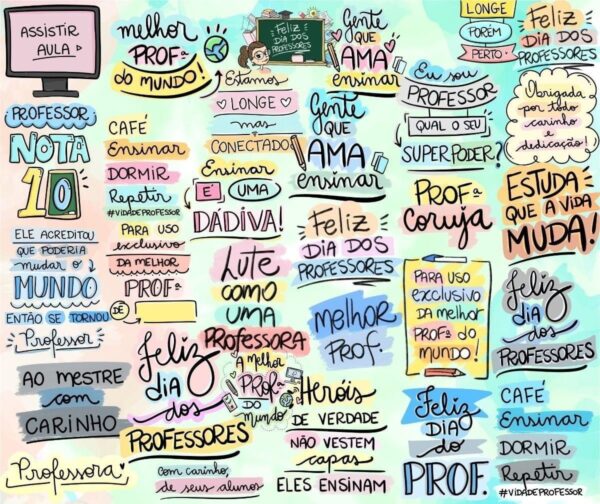 ASSISTIR
AULA
melhor
PROFª
do MUNDO!
FELIZ
DIA DOS
PROFESSORES
Gente
QUE
AMA
ensinar
LONGE
PORÉM
PERTO
FELIZ
DIA DOS
PROFESSORES
PROFESSOR
NOTA
10
CAFÉ
Ensinar
DORMIR
Repetir
#VIDADEPROFESSOR
Estamos
LONGE
mas
CONECTADOS
Gente
QUE
AMA
ensinar
Eu sou
PROFESSOR
QUAL O SEU
SUPERPODER?
Obrigada
por todo
carinho e
dedicação!
ELE ACREDITOU
QUE PODERIA
mudar o
MUNDO
ENTÃO SE TORNOU
Professor
PARA USO
exclusivo
DA MELHOR
PROFª
DE
Ensinar
É UMA
DÁDIVA!
FELIZ
DIA DOS
PROFESSORES
PROFª
coruja
ESTUDA
QUE A VIDA
MUDA!
LUTE
COMO
UMA
PROFESSORA
MELHOR
PROF.
PARA USO
exclusivo
DA melhor
PROFª do
MUNDO!
Feliz
DIA
dos
PROFESSORES
AO MESTRE
com
CARINHO
Feliz
DIA
dos
PROFESSORES
A MELHOR
PROFª
DO
MUNDO
HERÓIS
DE VERDADE
NÃO VESTEM
capas
ELES ENSINAM
Feliz
DIA
do
PROF.
CAFÉ
Ensinar
DORMIR
Repetir
#VIDADEPROFESSOR
Professora
Com carinho,
de seus alunos